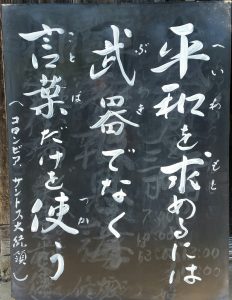 平和を求めるには
武器でなく
言葉だけを使う
(コロンビア サントス大統領)